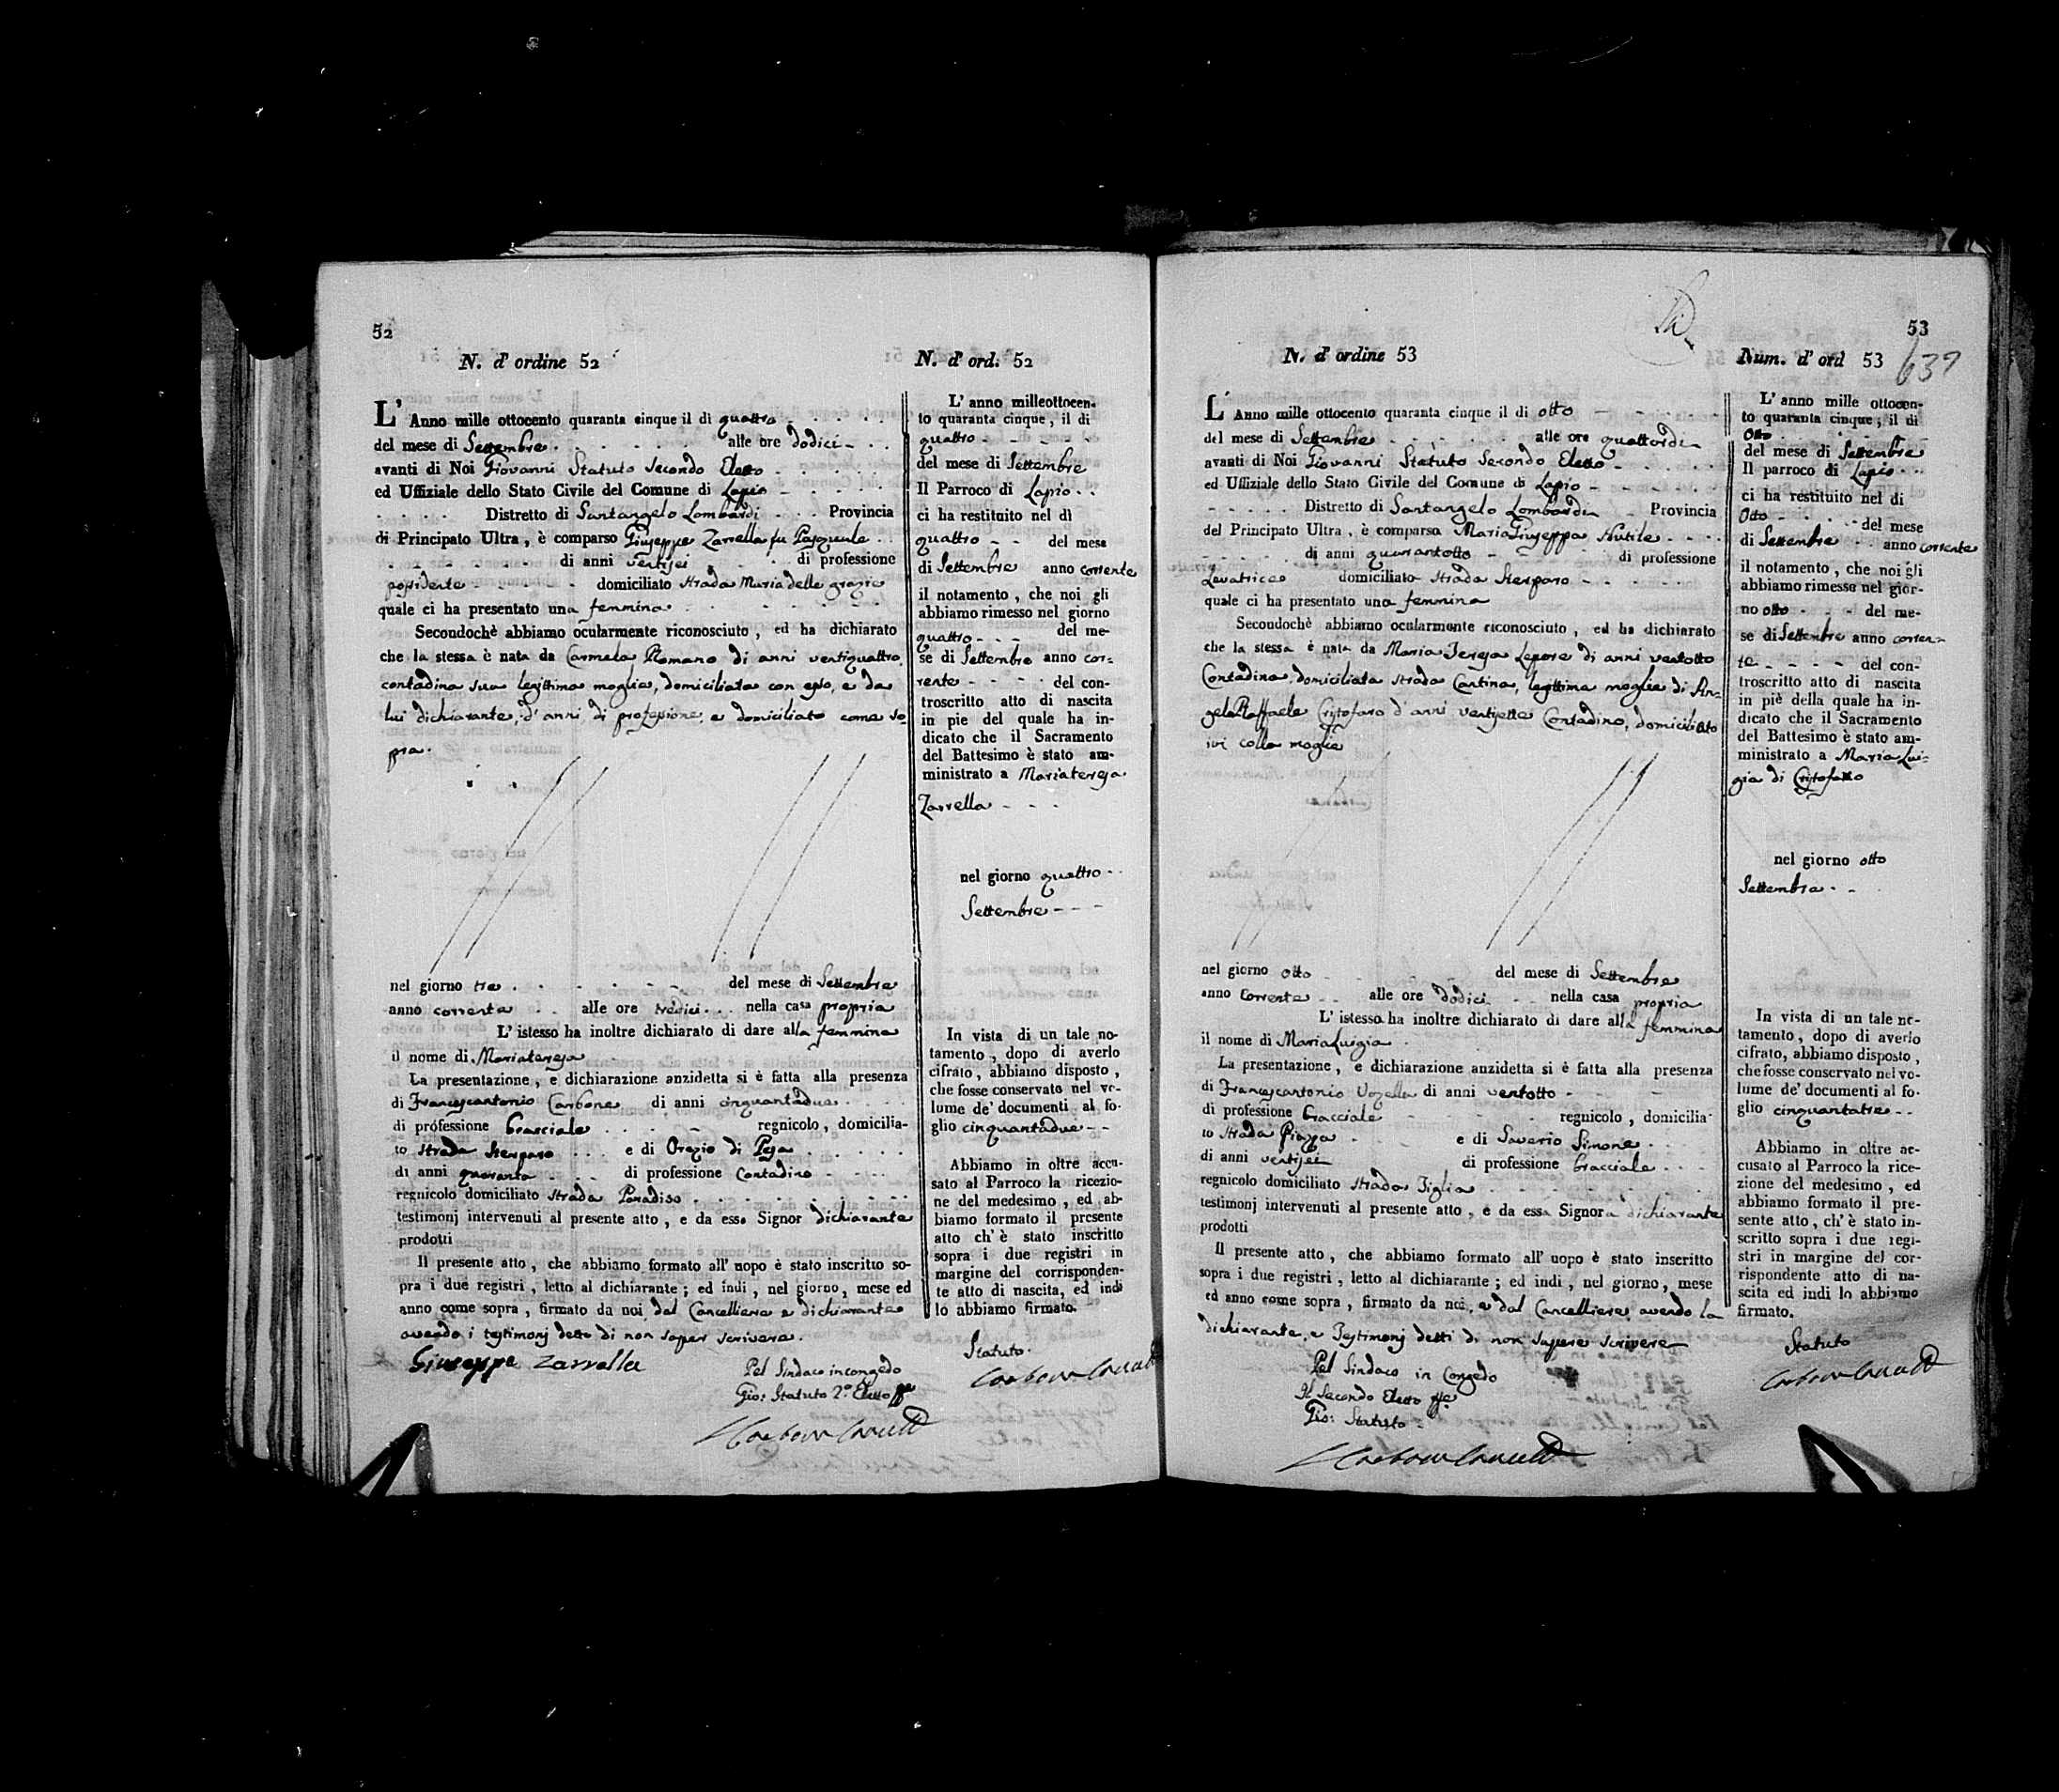 52
N. d' ordine 52
L' Anno mille ottocento quaranta cinque il dì quattro
del mese di Settembre alle ore dodici
avanti di Noi Giovanni Statuto Secondo Eletto
ed Uffiziale dello Stato Civile del Comune di Lapio
Distretto di Santangelo Lombardi Provincia
di Principato Ultra, è comparso Giuseppe Zarrella fu Pasquale
di anni ventisei di professione
possidente domiciliato Strada Maria delle grazie
quale ci ha presentato una femmina
Secondochè abbiamo ocularmente riconosciuto, ed ha dichiarato
che la stessa è nata da Carmela Romano di anni ventiquattro,
contadina sua legittima moglie, domiciliata con esso, e da
lui dichiarante, d' anni di professione, e domiciliato come so
pra.
nel giorno tre del mese di Settembre
anno corrente alle ore tredici nella casa propria
L' istesso ha inoltre dichiarato di dare alla femmina
il nome di Mariateresa
La presentazione, e dichiarazione anzidetta si è fatta alla presenza
di Francescantonio Carbone di anni cinquantadue
di professione bracciale regnicolo, domicilia-
to Strada Sterparo e di Orazio di Pesa
di anni quaranta di professione Contadino
regnicolo domiciliato Strada Paradiso
testimonj intervenuti al presente atto, e da esso Signor dichiarante
prodotti
Il presente atto, che abbiamo formato all' uopo è stato inscritto so-
pra i due registri, letto al dichiarante; ed indi, nel giorno, mese ed
anno come sopra, firmato da noi dal Cancelliere e dichiarante
avendo i testimonj detto di non saper scrivere.
Giuseppe Zarrella
Pel Sindaco in congedo
Gio: Statuto 2º Eletto
N. d' ord. 52
L' anno milleottocen-
to quaranta cinque, il di
quattro
del mese di Settembre
Il Parroco di Lapio
ci ha restituito nel dì
quattro del mese
di Settembre anno corrente
il notamento, che noi gli
abbiamo rimesso nel giorno
quattro del me-
se di Settembre anno cor-
rente del con-
troscritto atto di nascita
in pie del quale ha in-
dicato che il Sacramento
del Battesimo è stato am-
ministrato a Mariateresa
Zarrella
nel giorno quattro
Settembre
In vista di un tale no-
tamento, dopo di averlo
cifrato, abbiamo disposto,
che fosse conservato nel vo-
lume de' documenti al fo-
glio cinquantadue
Abbiamo in oltre accu-
sato al Parroco la ricezio-
ne del medesimo, ed ab-
biamo formato il presente
atto ch' è stato inscritto
sopra i due registri in
margine del corrisponden-
te atto di nascita, ed indi
lo abbiamo firmato.
Statuto
53
637
N. d' ordine 53
L' Anno mille ottocento quaranta cinque il di otto
del mese di Settembre alle ore quattordici
avanti di Noi Giovanni Statuto Secondo Eletto
ed Uffiziale dello Stato Civile del Comune di Lapio
Distretto di Santangelo Lombardi Provincia
del Principato Ultra, è comparsa MariaGiuseppa
di anni quarantotto di professione
Levatrice domiciliata Strada Sterparo
quale ci ha presentato una femmina
Secondochè abbiamo ocularmente riconosciuto, ed ha dichiarato
che la stessa è nata da Maria Teresa Lepore di anni ventotto
Contadina, domiciliata Strada Cantina, legittima moglie di An-
geloRaffaele Cristofaro d' anni ventisette Contadino, domiciliato
ivi colla moglie
nel giorno otto del mese di Settembre
anno corrente alle ore dodici nella casa propria
L' istessa ha inoltre dichiarato di dare alla femmina
il nome di MariaLuigia
La presentazione, e dichiarazione anzidetta si è fatta alla presenza
di Francescantonio Vozella di anni ventotto
di professione bracciale regnicolo, domicilia-
to Strada Piazza e di Saverio Simone
di anni ventisei di professione bracciale
regnicolo domiciliato Strada Tiglia
testimonj intervenuti al presente atto, e da essa Signora dichiarante
prodotti
Il presente atto, che abbiamo formato all' uopo è stato inscritto
sopra i due registri, letto al dichiarante; ed indi, nel giorno, mese
ed anno come sopra, firmato da noi, e dal Cancelliere avendo la
dichiarante, e Testimonj detti di non sapere scrivere
Pel Sindaco in Congedo
Il Secondo Eletto
Gio: Statuto
Num. d' ord 53
L' anno mille ottocen-
to quaranta cinque, il di
Otto
del mese di Settembre
Il parroco di Lapio
ci ha restituito nel di
Otto del mese
di Settembre anno corrente
il notamento, che noi gli
abbiamo rimesso nel gior-
no otto del me-
se di Settembre anno corren-
te del con-
troscritto atto di nascita
in piè della quale ha in-
dicato che il Sacramento
del Battesimo è stato am-
ministrato a Maria Lui-
gia di Cristofaro
nel giorno otto
Settembre
In vista di un tale no-
tamento, dopo di averlo
cifrato, abbiamo disposto,
che fosse conservato nel vo-
lume de' documenti al fo-
glio cinquantatre
Abbiamo in oltre ac-
cusato al Parroco la rice-
zione del medesimo, ed
abbiamo formato il pre-
sente atto, ch' è stato in-
scritto sopra i due regi-
stri in margine del cor-
rispondente atto di na-
scita ed indi lo abbiamo
firmato.
Statuto